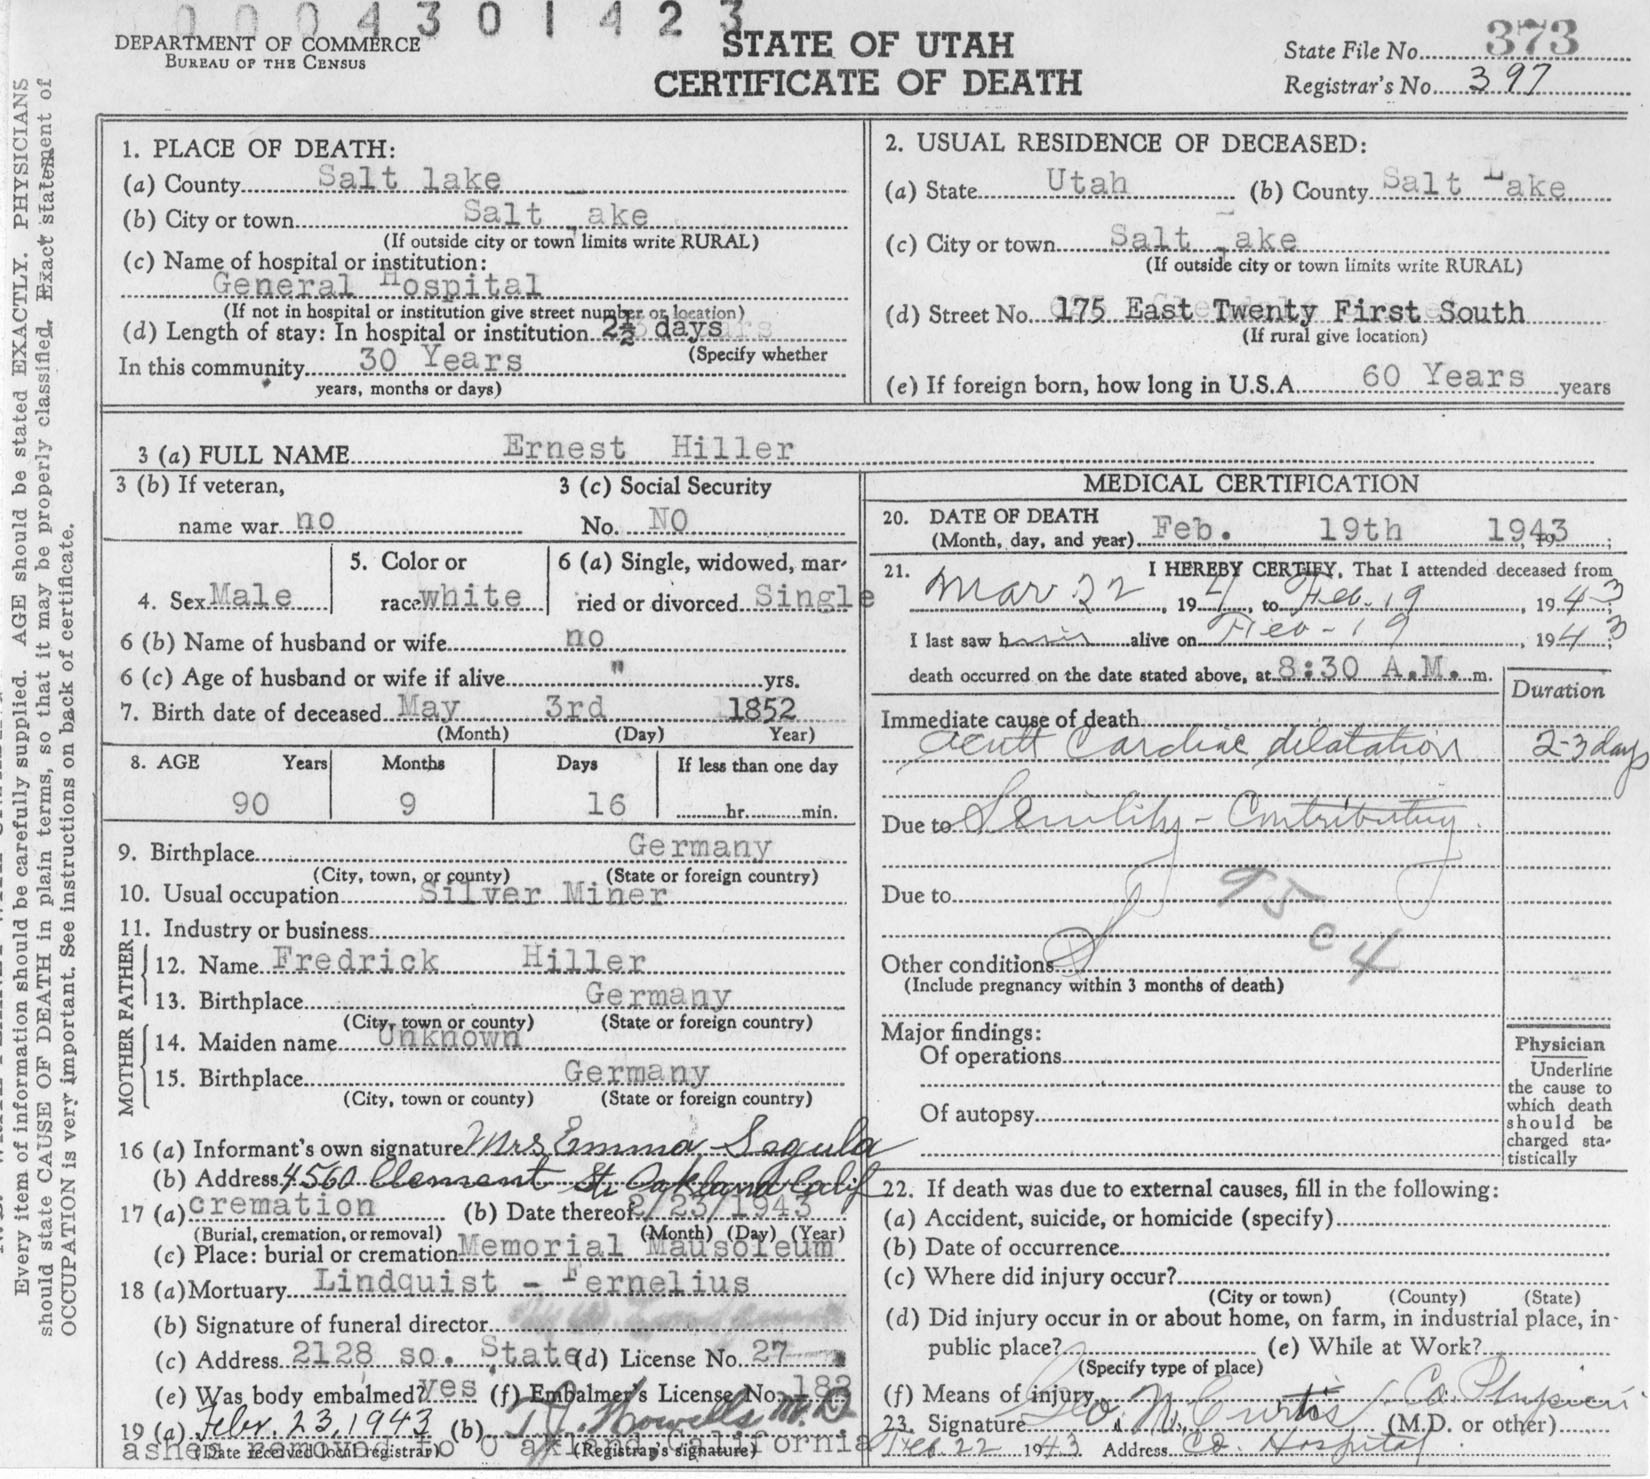 0004301423
DEPARTMENT OF COMMERCE
BUREAU OF THE CENSUS
STATE OF UTAH
CERTIFICATE OF DEATH
State File No. 373
Registrar's No. 397
Every item of information should be carefully supplied. AGE should be stated EXACTLY. PHYSICIANS
should state CAUSE OF DEATH in plain terms, so that it may be properly classified. Exact statement of
OCCUPATION is very important. See instructions on back of certificate.
1. PLACE OF DEATH:
(a) County Salt lake
(b) City or town Salt ake
(If outside city or town limits write RURAL)
(c) Name of hospital or institution:
General Hospital
(If not in hospital or institution give street number or location)
(d) Length of stay: In hospital or institution 2½ days
(Specify whether
In this community 30 Years
years, months or days)
2. USUAL RESIDENCE OF DECEASED:
(a) State Utah (b) County Salt Lake
(c) City or town Salt ake
(If outside city or town limits write RURAL)
(d) Street No. 175 East Twenty First South
(If rural give location)
(e) If foreign born, how long in U.S.A. 60 Years years
3 (a) FULL NAME Ernest Hiller
3 (b) If veteran,
name war no
3 (c) Social Security
No. NO
4. Sex Male
5. Color or
race white
6 (a) Single, widowed, mar-
ried or divorced Single
6 (b) Name of husband or wife no
6 (c) Age of husband or wife if alive " yrs.
7. Birth date of deceased May 3rd 1852
(Month) (Day) Year)
8. AGE Years Months Days If less than one day
90 9 16 hr. min.
9. Birthplace Germany
(City, town, or county) (State or foreign country)
10. Usual occupation Silver Miner
11. Industry or business
FATHER
12. Name Fredrick Hiller
13. Birthplace Germany
(City, town or county) (State or foreign country)
MOTHER
14. Maiden name Unknown
15. Birthplace Germany
(City, town or county) (State or foreign country)
16 (a) Informant's own signature Mrs Emma Segula
(b) Address 4560 Clement St. Oakland Calif
17 (a) cremation (b) Date thereof 2/23/1943
(Burial, cremation, or removal) (Month) (Day) (Year)
(c) Place: burial or cremation Memorial Mausoleum
18 (a) Mortuary Lindquist - Fernelius
(b) Signature of funeral director
(c) Address 2128 so. State (d) License No. 27
(e) Was body embalmed? yes (f) Embalmer's License No. 182
19 (a) Febr. 23, 1943 (b) T.J. Howells M.D
(Date received local registrar) (Registrar's signature)
ashes removed to Oakland California
MEDICAL CERTIFICATION
20. DATE OF DEATH
(Month, day, and year) Feb. 19th 1943
21. I HEREBY CERTIFY, That I attended deceased from
Mar 22, 19 41, to Feb-19, 1943;
I last saw h im alive on Feb-19, 1943;
death occurred on the date stated above, at 8:30 A.M. m.
Duration
Immediate cause of death
acute Cardiac dilatation 2-3 days
Due to Senility - Contributing
Due to
95c4
Other conditions
(Include pregnancy within 3 months of death)
Major findings:
Of operations
Of autopsy
Physician
Underline
the cause to
which death
should be
charged sta-
tistically
22. If death was due to external causes, fill in the following:
(a) Accident, suicide, or homicide (specify)
(b) Date of occurrence
(c) Where did injury occur?
(City or town) (County) (State)
(d) Did injury occur in or about home, on farm, in industrial place, in-
public place? (e) While at Work?
(Specify type of place)
(f) Means of injury
23. Signature Geo. N. Curtis, Co. Physician (M.D. or other)
Feb. 22 1943 Address Co. Hospital